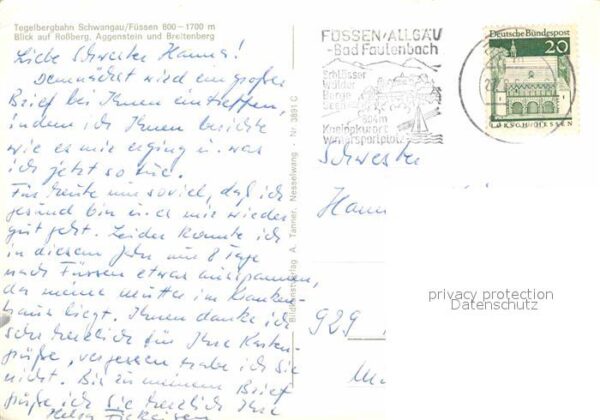 Tegelbergbahn Schwangau/Füssen 800–1700 m
Blick auf Roßberg, Aggenstein und Breitenberg
Liebe Schwester Hanna!
Demnächst wird ein großer
Brief bei Ihnen eintreffen,
indem ich Ihnen berichte
wie es mir erging u. was
ich jetzt so tue.
Für heute nur soviel, daß ich
gesund bin u. es mir wieder
gut geht. Leider konnte ich
in diesem Jahr nur 8 Tage
nach Füssen etwas ausspannen,
da meine Mutter im Kranken-
haus liegt. Ihnen danke ich
sehr herzlich für Ihre Karten-
grüße, vergessen habe ich Sie
nicht. Bis zu meinem Brief
grüße ich Sie herzlich Ihre
Helga
Bild Kunstverlag A. Tanner, Nesselwang - Nr. 3891 C
FÜSSEN/ALLGÄU
-Bad Faulenbach
Schlösser
Wälder
Berge
Seen
804m
Kneippkurort
Wintersportplatz
Deutsche Bundespost
20
LORSCH/HESSEN
Schwester
Hann
929
privacy protection
Datenschutz